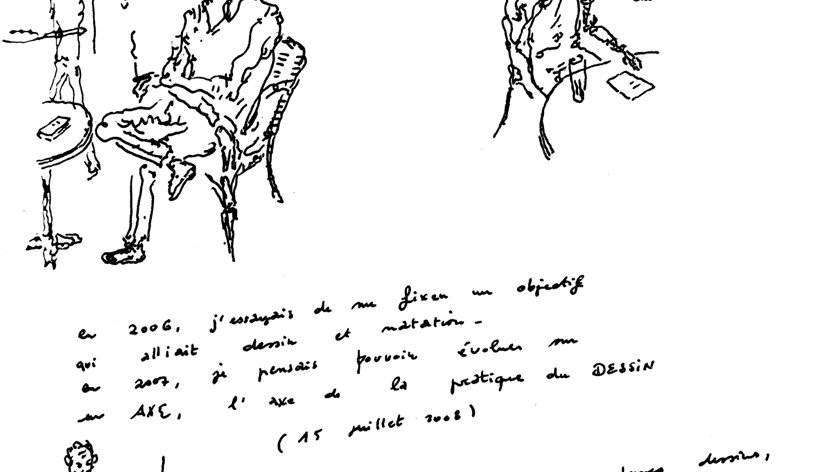 en 2006, j'essayais de me fixer un objectif
qui alliait dessin et natation -
en 2007, je pensais pouvoir évoluer sur
un AXE, l'axe de la pratique du DESSIN
(15 juillet 2008)
dessins,